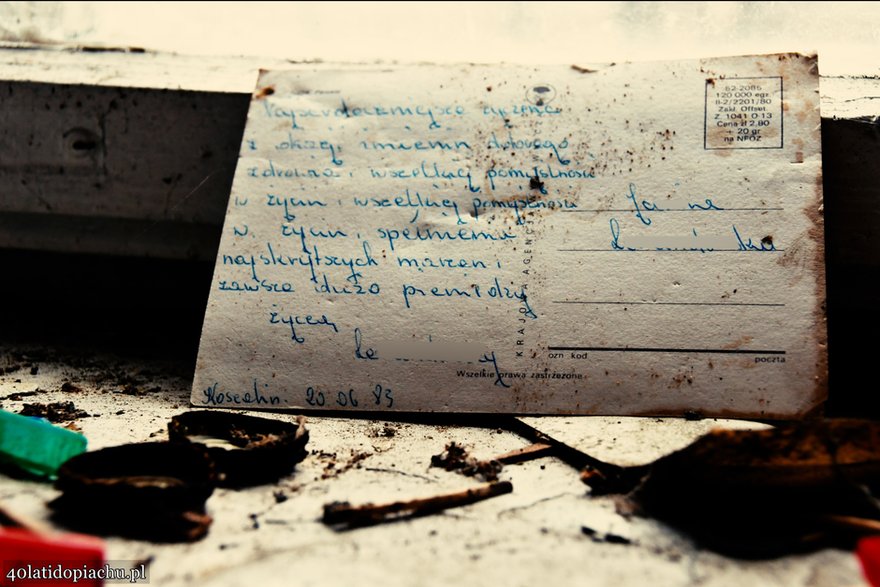 Najserdeczniejsze życzenia
z okazji imienin dobrego
zdrowia i wszelkiej pomyślności
w życiu i wszelkiej pomyślności
w życiu, spełnienia
najskrytszych marzeń i
zawsze dużo pieniędzy
życzą
Koszalin. 20 06 83
62-2085
120 000 egz.
II-2/2201/80
Zakł. Offset.
Z. 1041 0-13
Cena zł 2,80
+ 20 gr
na NFOZ
KRAJOWA AGENCJA
ozn kod
poczta
Wszelkie prawa zastrzeżone
40latidopiachu.pl